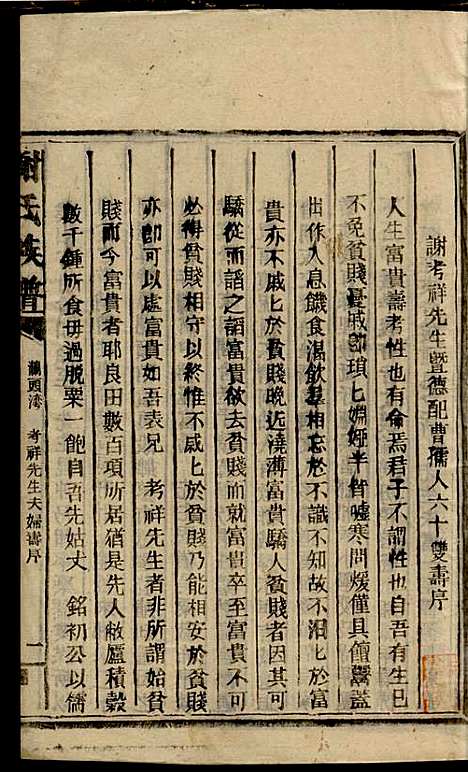 謝考祥先生暨德配曹孺人六十雙壽序
人生富貴壽考性也有侖焉君子不謂性也自吾有生已
不免貧賤憂戚卽瑣匕姻婭半皆噓寒問煖僅具饘鬻蓋
出作入息饑食渴飲悬相忘於不識不知故不汨匕於富
貴亦不戚匕於貧賤晚近澆薄富貴驕人貧賤者因其可
驕從而諂之諂富貴而就富貴卒至富貴不可
必得貧賤相守以終惟不戚匕於貧賤乃能相安於貧賤
亦卽可以處富貴如吾表兄　考祥先生者非所謂始貧
賤而今富貴者耶良田數百項所居猶是先人敝廬積穀
數千鍾所食毋過脫粟一飽自吾先姑丈　銘初公以儒
謝氏族譜
灣　考祥先生夫婦壽序
一